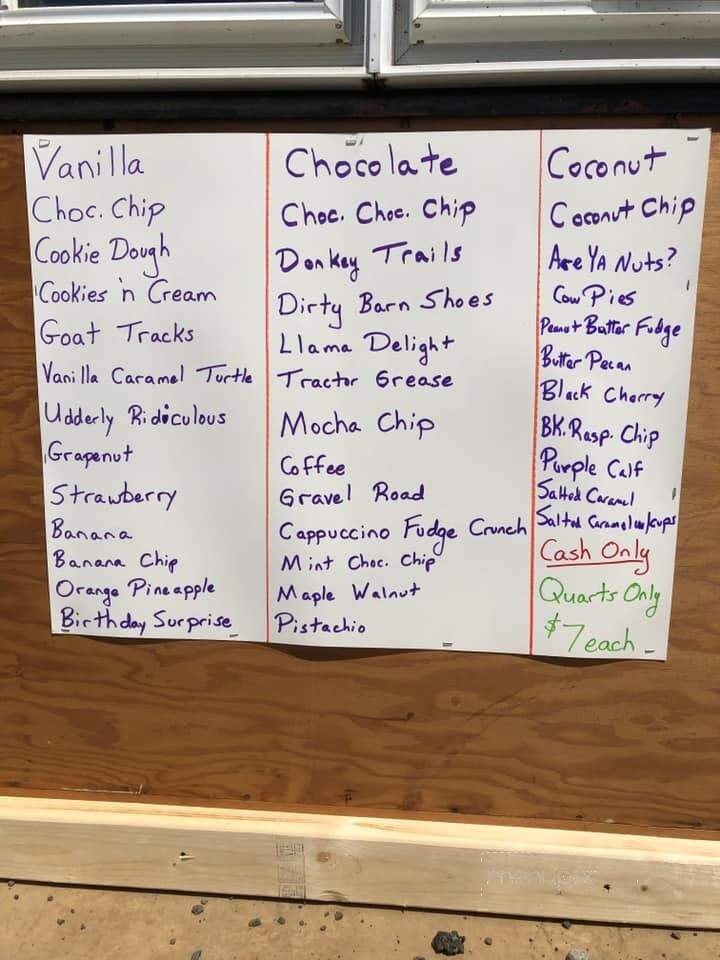 Vanilla
Choc. Chip
Cookie Dough
Cookies 'n Cream
Goat Tracks
Vanilla Caramel Turtle
Udderly Ridiculous
Grapenut
Strawberry
Banana
Banana Chip
Orange Pineapple
Birthday Surprise
Chocolate
Choc. Choc. Chip
Donkey Trails
Dirty Barn Shoes
Llama Delight
Tractor Grease
Mocha Chip
Coffee
Gravel Road
Cappuccino Fudge Crunch
Mint Choc. Chip
Maple Walnut
Pistachio
Coconut
Coconut Chip
Are YA Nuts?
Cow Pies
Peanut Butter Fudge
Butter Pecan
Black Cherry
BK. Rasp. Chip
Purple Calf
Salted Caramel
Salted Caramel w/cups
Cash Only
Quarts Only
$7 each
menupix